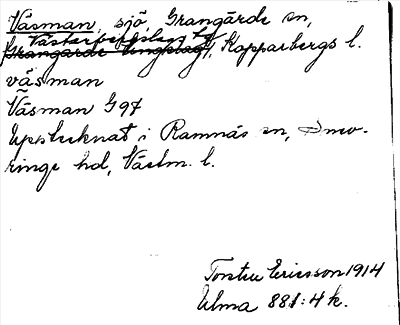 Väsman, sjö Grangärde sn,
Västerbergslags tg
Grangärde tingslag, Kopparbergs l.
väsman
Väsman G 97
Upptecknat i Ramnäs sn, Snev-
ringe hd, Västm. l.
Torsten Ericsson 1914
Ulma 881:4 k.